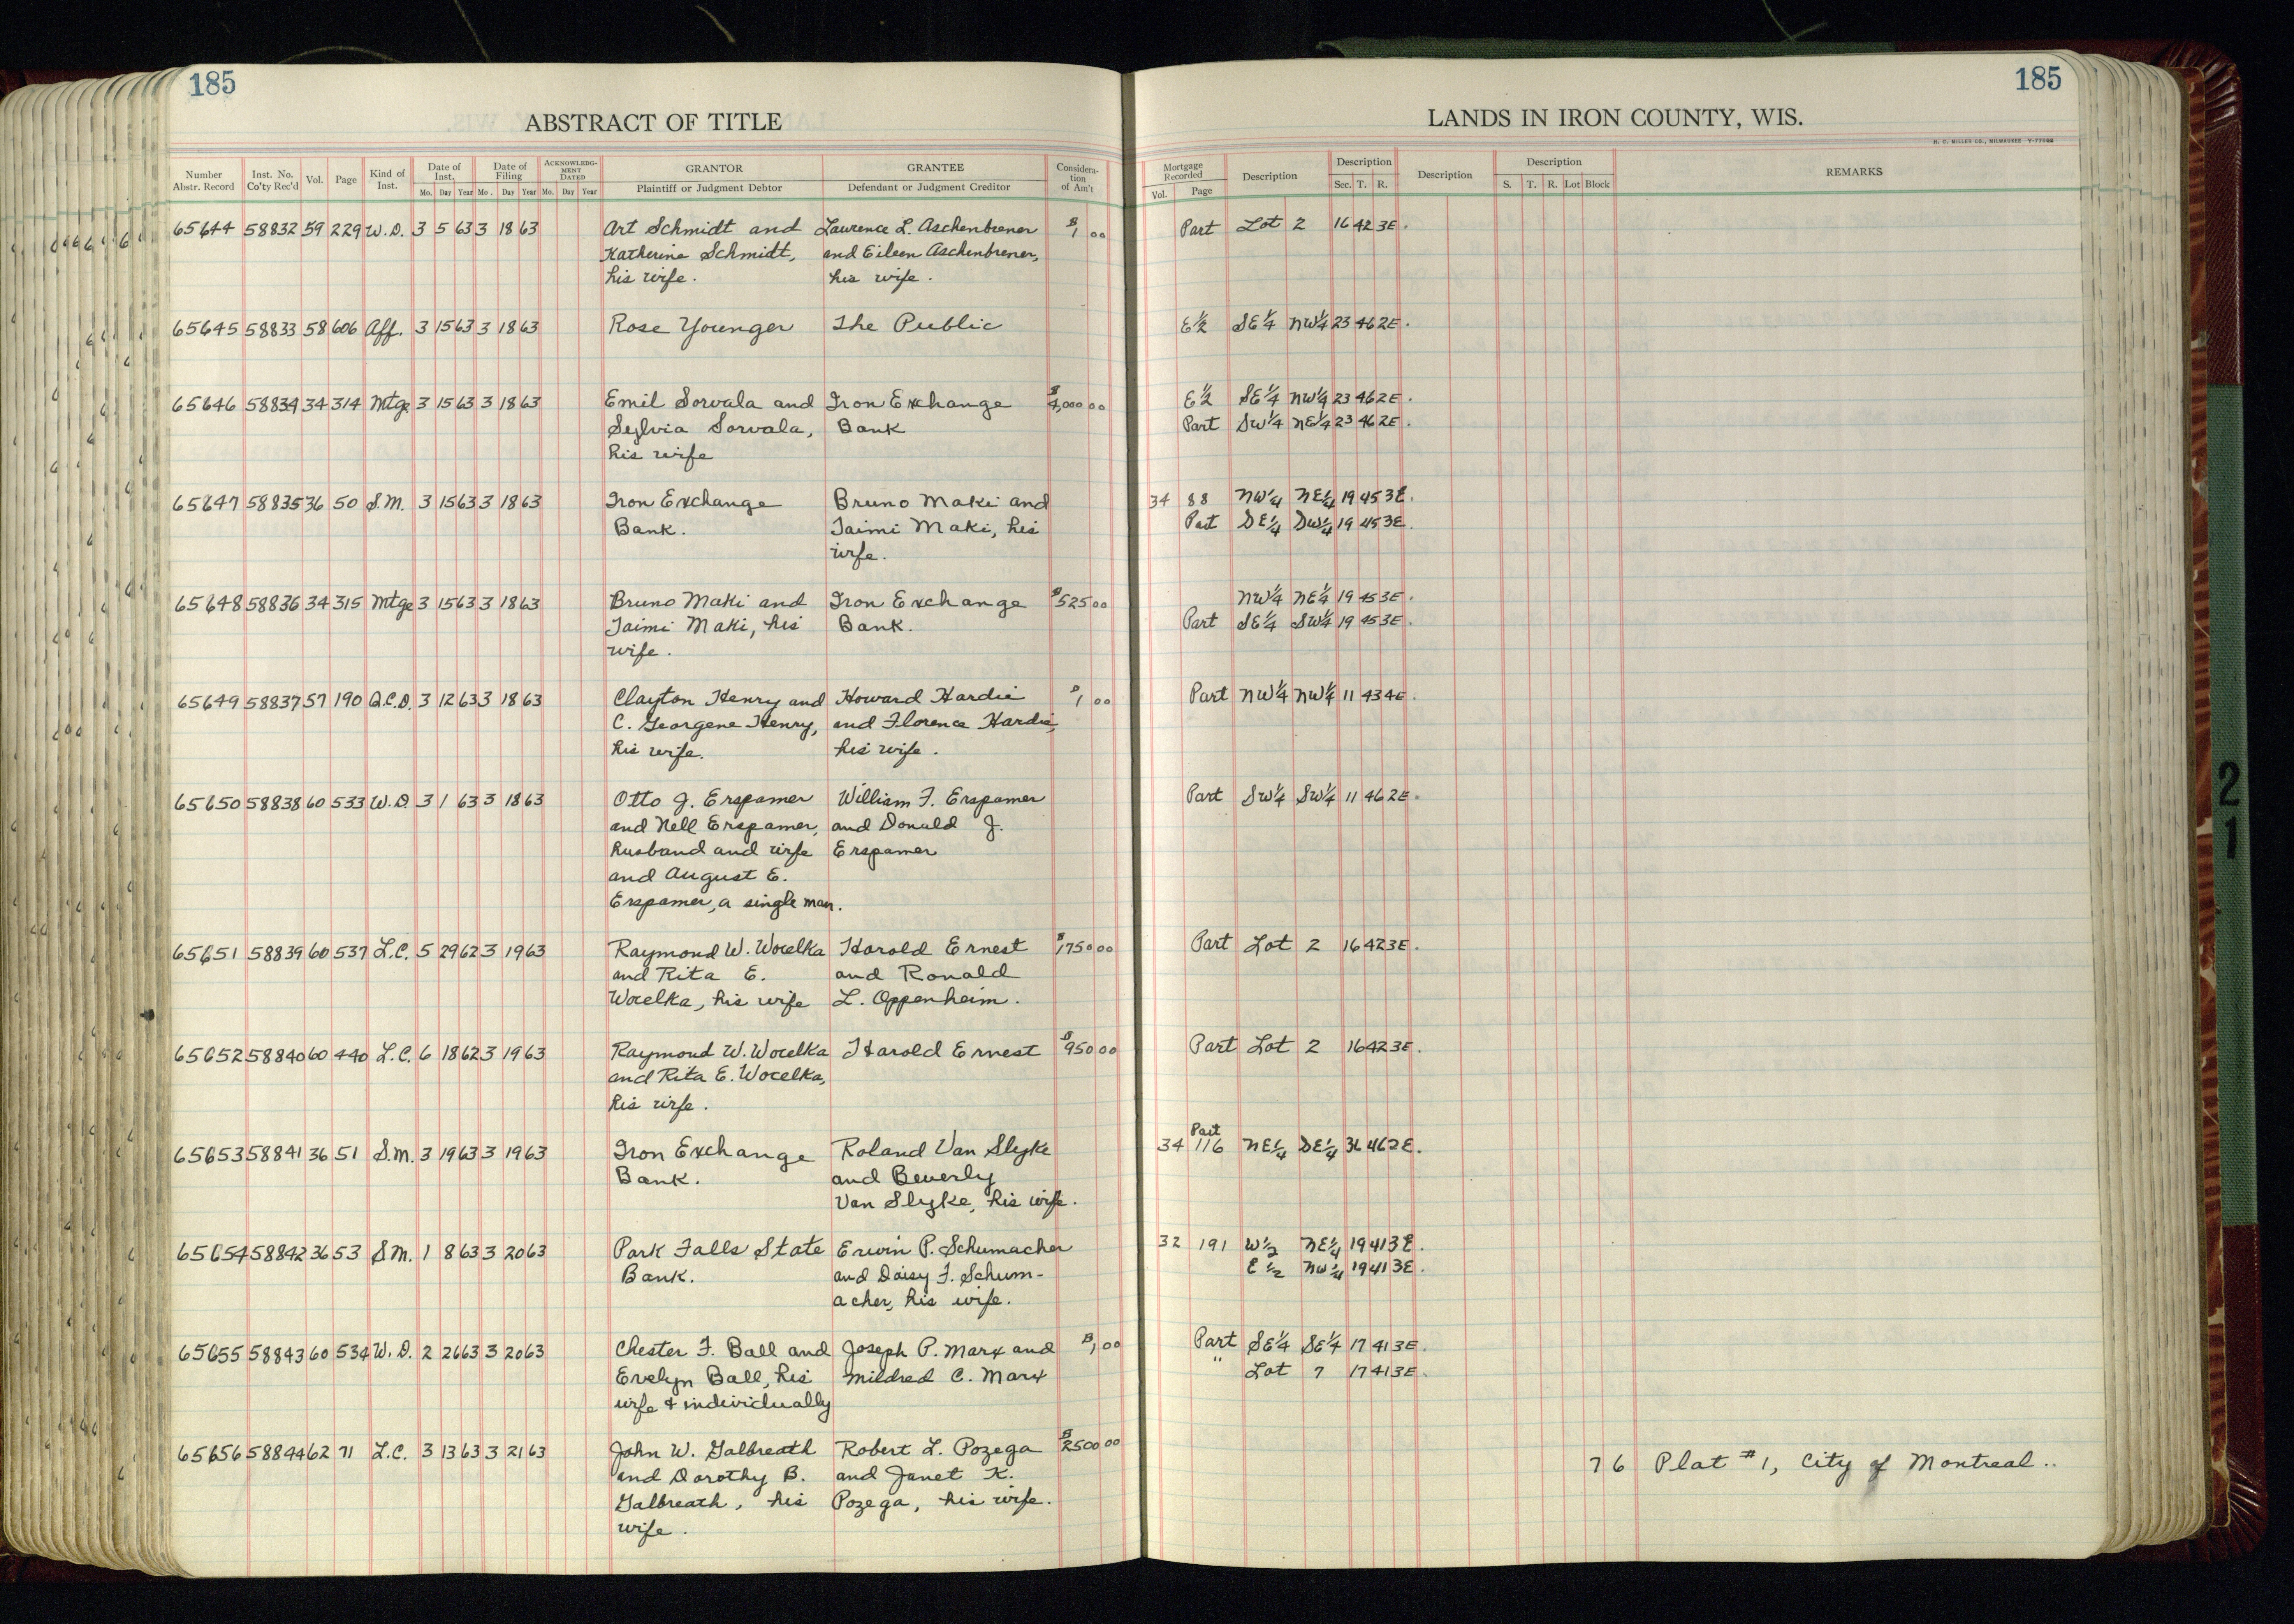 185
185
ABSTRACT OF TITLE
LANDS IN IRON COUNTY, WIS.
H. C. MILLER CO., MILWAUKEE
Number Abstr. Record Inst. No. Co'ty Rec'd Vol. Page Kind of Inst. Date of Inst. Mo. Day Year Date of Filing Mo. Day Year ACKNOWLEDGMENT DATED Mo. Day Year GRANTOR Plaintiff or Judgment Debtor GRANTEE Defendant or Judgment Creditor Consideration of Am't
Mortgage Recorded Vol. Page Description Description Sec. T. R. Description Description S. T. R. Lot Block REMARKS
65644 58832 59 229 W.D. 3 5 63 3 18 63 Art Schmidt and Laurence L. Aschenbrener $1 00 Part Lot 2 16 42 3E.
Katherine Schmidt, and Eileen Aschenbrener,
his wife. his wife.
65645 58833 58 606 Aff. 3 15 63 3 18 63 Rose Younger The Public E½ SE¼ NW¼ 23 46 2E.
65646 58834 34 314 Mtge 3 15 63 3 18 63 Emil Sorvala and Iron Exchange $4,000 00 E½ SE¼ NW¼ 23 46 2E.
Sylvia Sorvala, Bank Part SW¼ NE¼ 23 46 2E.
his wife
65647 58835 36 50 S.M. 3 15 63 3 18 63 Iron Exchange Bruno Maki and 34 88 NW¼ NE¼ 19 45 3E.
Bank. Taimi Maki, his Part SE¼ SW¼ 19 45 3E.
wife.
65648 58836 34 315 Mtge 3 15 63 3 18 63 Bruno Maki and Iron Exchange $525 00 NW¼ NE¼ 19 45 3E.
Taimi Maki, his Bank. Part SE¼ SW¼ 19 45 3E.
wife.
65649 58837 57 190 Q.C.D. 3 12 63 3 18 63 Clayton Henry and Howard Hardie $1 00 Part NW¼ NW¼ 11 43 4E.
C. Georgene Henry, and Florence Hardie,
his wife. his wife.
65650 58838 60 533 W.D. 3 1 63 3 18 63 Otto J. Erspamer William F. Erspamer Part SW¼ SW¼ 11 46 2E.
and Nell Erspamer, and Donald J.
husband and wife Erspamer
and August E.
Erspamer, a single man.
65651 58839 60 537 L.C. 5 29 62 3 19 63 Raymond W. Wocelka Harold Ernest $1750 00 Part Lot 2 16 42 3E.
and Rita E. and Ronald
Wocelka, his wife L. Oppenheim.
65652 58840 60 440 L.C. 6 18 62 3 19 63 Raymond W. Wocelka Harold Ernest $950 00 Part Lot 2 16 42 3E.
and Rita E. Wocelka,
his wife.
65653 58841 36 51 S.M. 3 19 63 3 19 63 Iron Exchange Roland Van Slyke 34 Part 116 NE¼ SE¼ 36 46 2E.
Bank. and Beverly
Van Slyke, his wife.
65654 58842 36 53 S.M. 1 8 63 3 20 63 Park Falls State Erwin P. Schumacher 32 191 W½ NE¼ 19 41 3E.
Bank. and Daisy F. Schum- E½ NW¼ 19 41 3E.
acher, his wife.
65655 58843 60 534 W.D. 2 26 63 3 20 63 Chester F. Ball and Joseph P. Marx and $1 00 Part SE¼ SE¼ 17 41 3E.
Evelyn Ball, his Mildred C. Marx " Lot 7 17 41 3E.
wife & individually
65656 58844 62 71 L.C. 3 13 63 3 21 63 John W. Galbreath Robert L. Pozega $2500 00 76 Plat #1, City of Montreal..
and Dorothy B. and Janet K.
Galbreath, his Pozega, his wife.
wife.
21